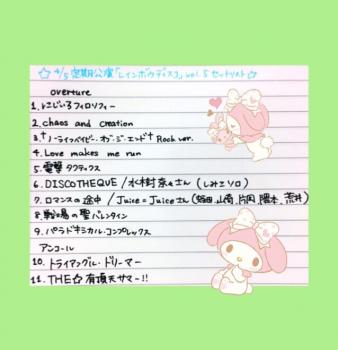 ☆ 4/5 定期公演「レインボウディスク」vol.5 セットリスト☆
overture
1. とこいろフィロソフィー
2. chaos and creation
3. †ノーライフベイビー・オブ・ジ・エンド† Rock ver.
4. Love makes me run
5. 電撃タクティクス
6. DISCOTHEQUE / 水樹奈々さん (しみこソロ)
7. ロマンスの途中 / Juice=Juiceさん (坂田、山崎、片岡、隈本、荒井)
8. 戦場の聖バレンタイン
9. パラドキシカル・コンプレックス
アンコール
10. トライアングル・ドリーマー
11. THE☆有頂天サマー!!